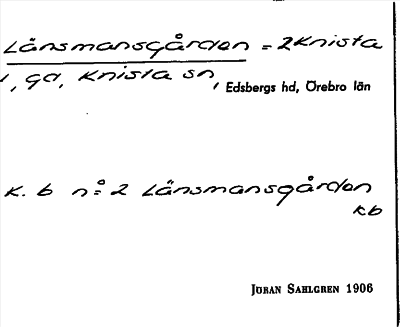 Länsmansgården = 2 Knista
1, gd, Knista sn, Edsbergs hd, Örebro län
K. b nº= 2 Länsmansgården
kb
Jöran Sahlgren 1906